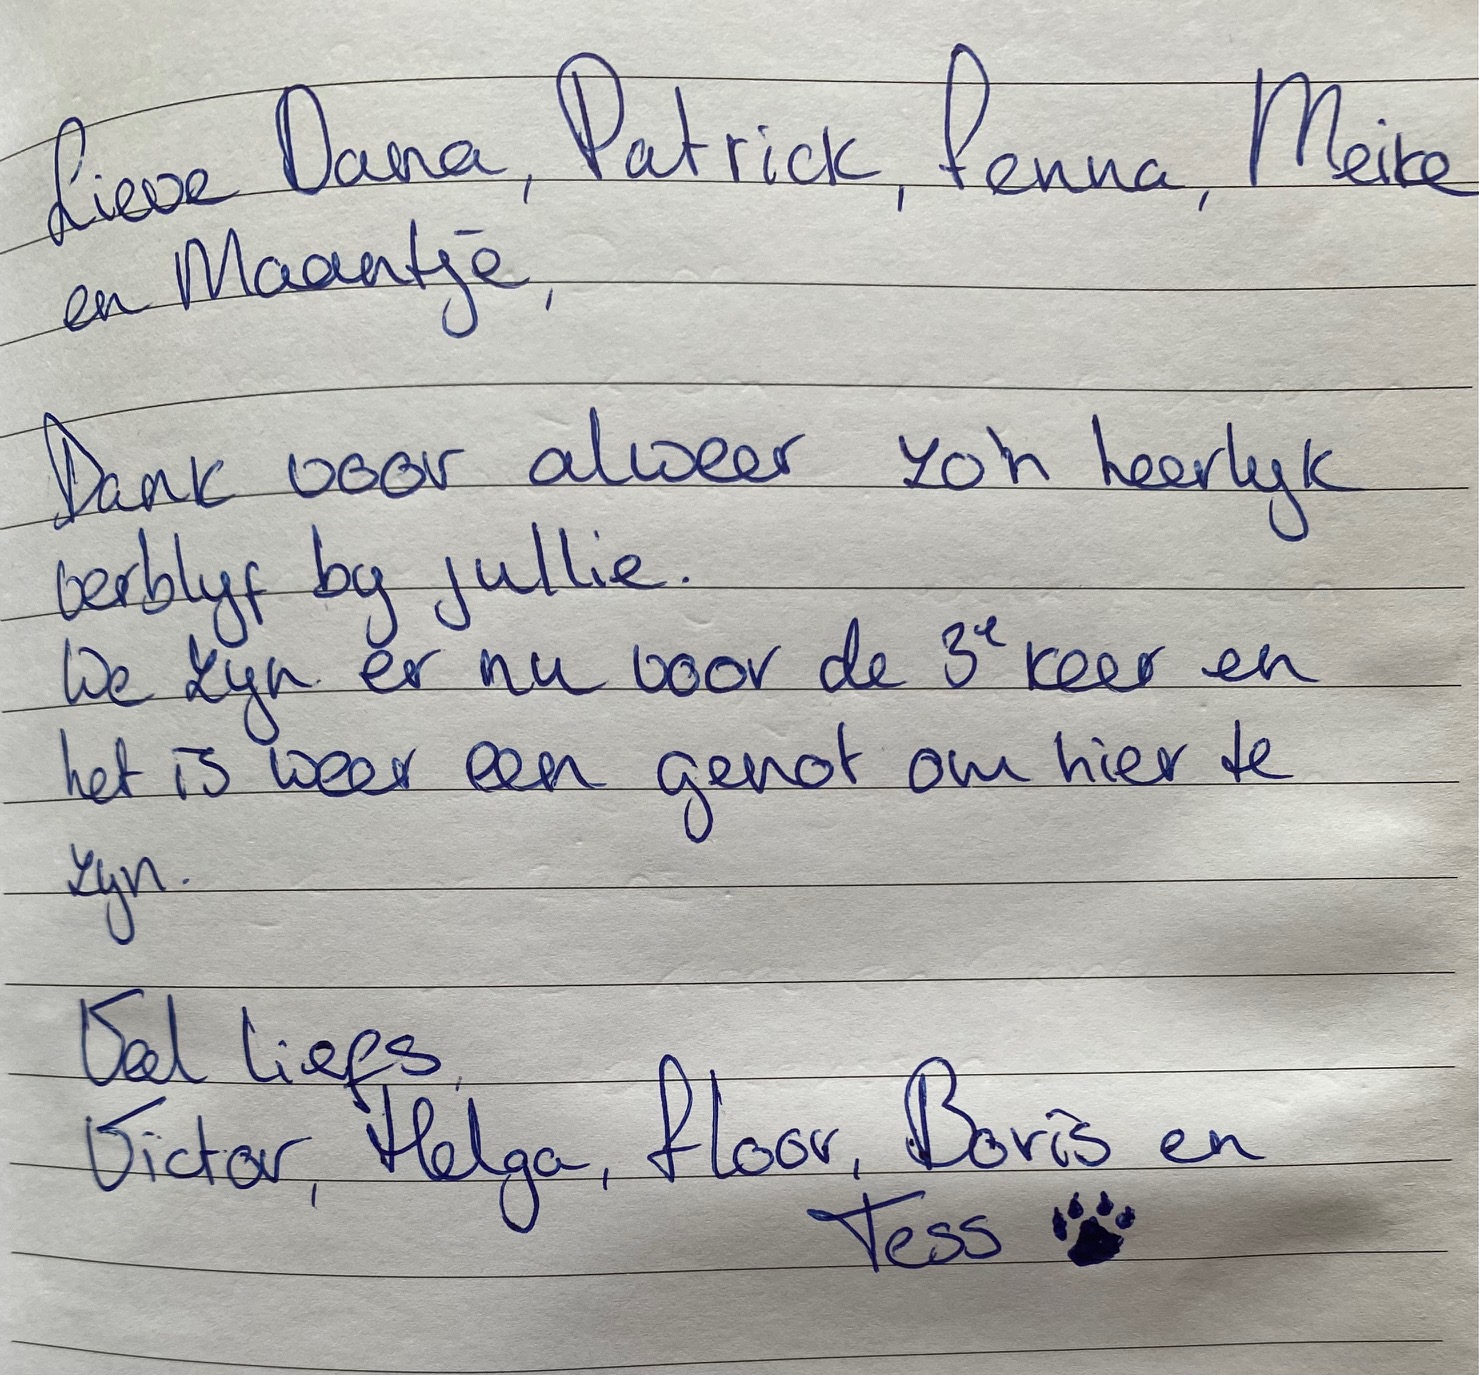 Lieve Dana, Patrick, Fenna, Meike
en Maantje,
Dank voor alweer zo'n heerlyk
verblyf by jullie.
We zyn er nu voor de 3e keer en
het is weer een genot om hier te
zyn.
Veel liefs,
Victor, Helga, Floor, Boris en
Tess